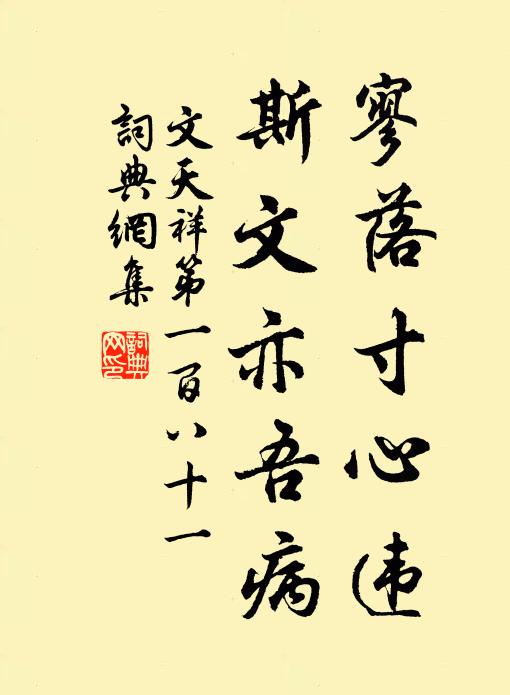 寥落寸心违
斯文亦吾病
文天祥第一百八十一
詞典網集
詞典网印